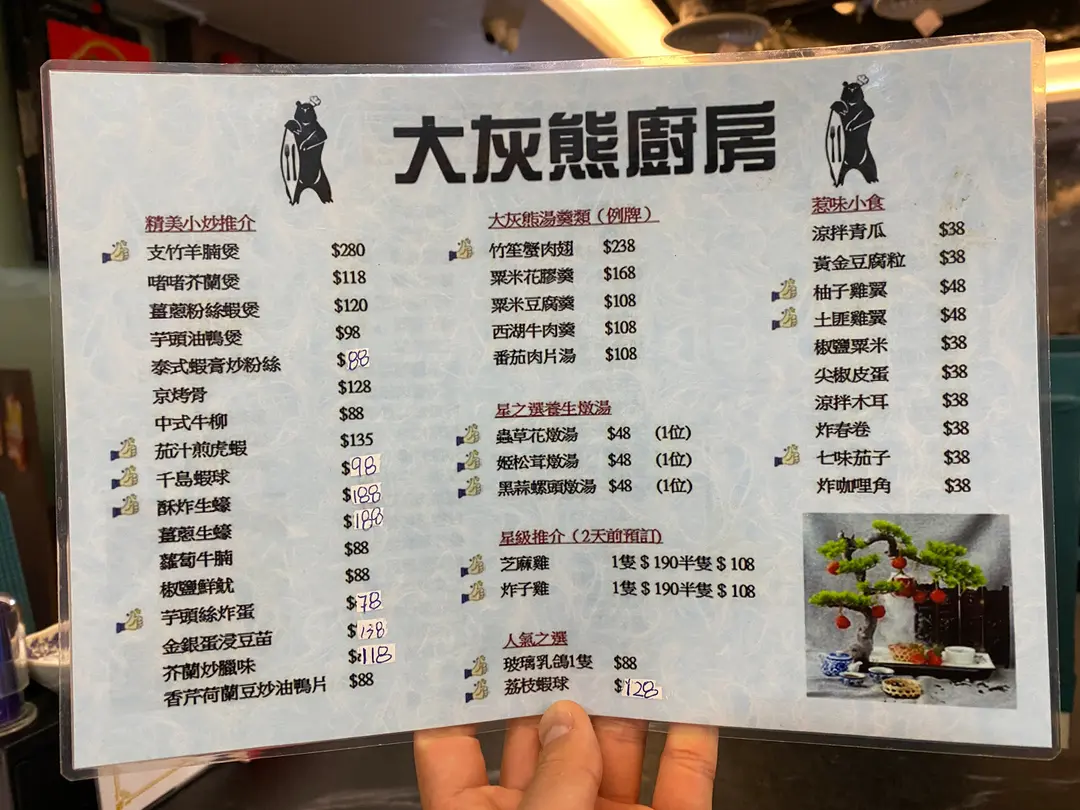 大灰熊廚房
精美小炒推介
支竹羊腩煲 $280
啫啫芥蘭煲 $118
薑蔥粉絲蝦煲 $120
芋頭油鴨煲 $98
泰式蝦膏炒粉絲 $88
京烤骨 $128
中式牛柳 $88
茄汁煎虎蝦 $135
千島蝦球 $98
酥炸生蠔 $188
薑蔥生蠔 $188
蘿蔔牛腩 $88
椒鹽鮮魷 $88
芋頭絲炸蛋 $78
金銀蛋浸豆苗 $138
芥蘭炒臘味 $118
香芹荷蘭豆炒油鴨片 $88
大灰熊湯羹類（例牌）
竹笙蟹肉翅 $238
粟米花膠羹 $168
粟米豆腐羹 $108
西湖牛肉羹 $108
番茄肉片湯 $108
星之選養生燉湯
蟲草花燉湯 $48 (1位)
姬松茸燉湯 $48 (1位)
黑蒜螺頭燉湯 $48 (1位)
星級推介（2天前預訂)
芝麻雞 1隻＄190半隻＄108
炸子雞 1隻＄190半隻＄108
人氣之選
玻璃乳鴿1隻 $88
荔枝蝦球 $128
惹味小食
涼拌青瓜 $38
黃金豆腐粒 $38
柚子雞翼 $48
土匪雞翼 $48
椒鹽粟米 $38
尖椒皮蛋 $38
涼拌木耳 $38
炸春卷 $38
七味茄子 $38
炸咖哩角 $38